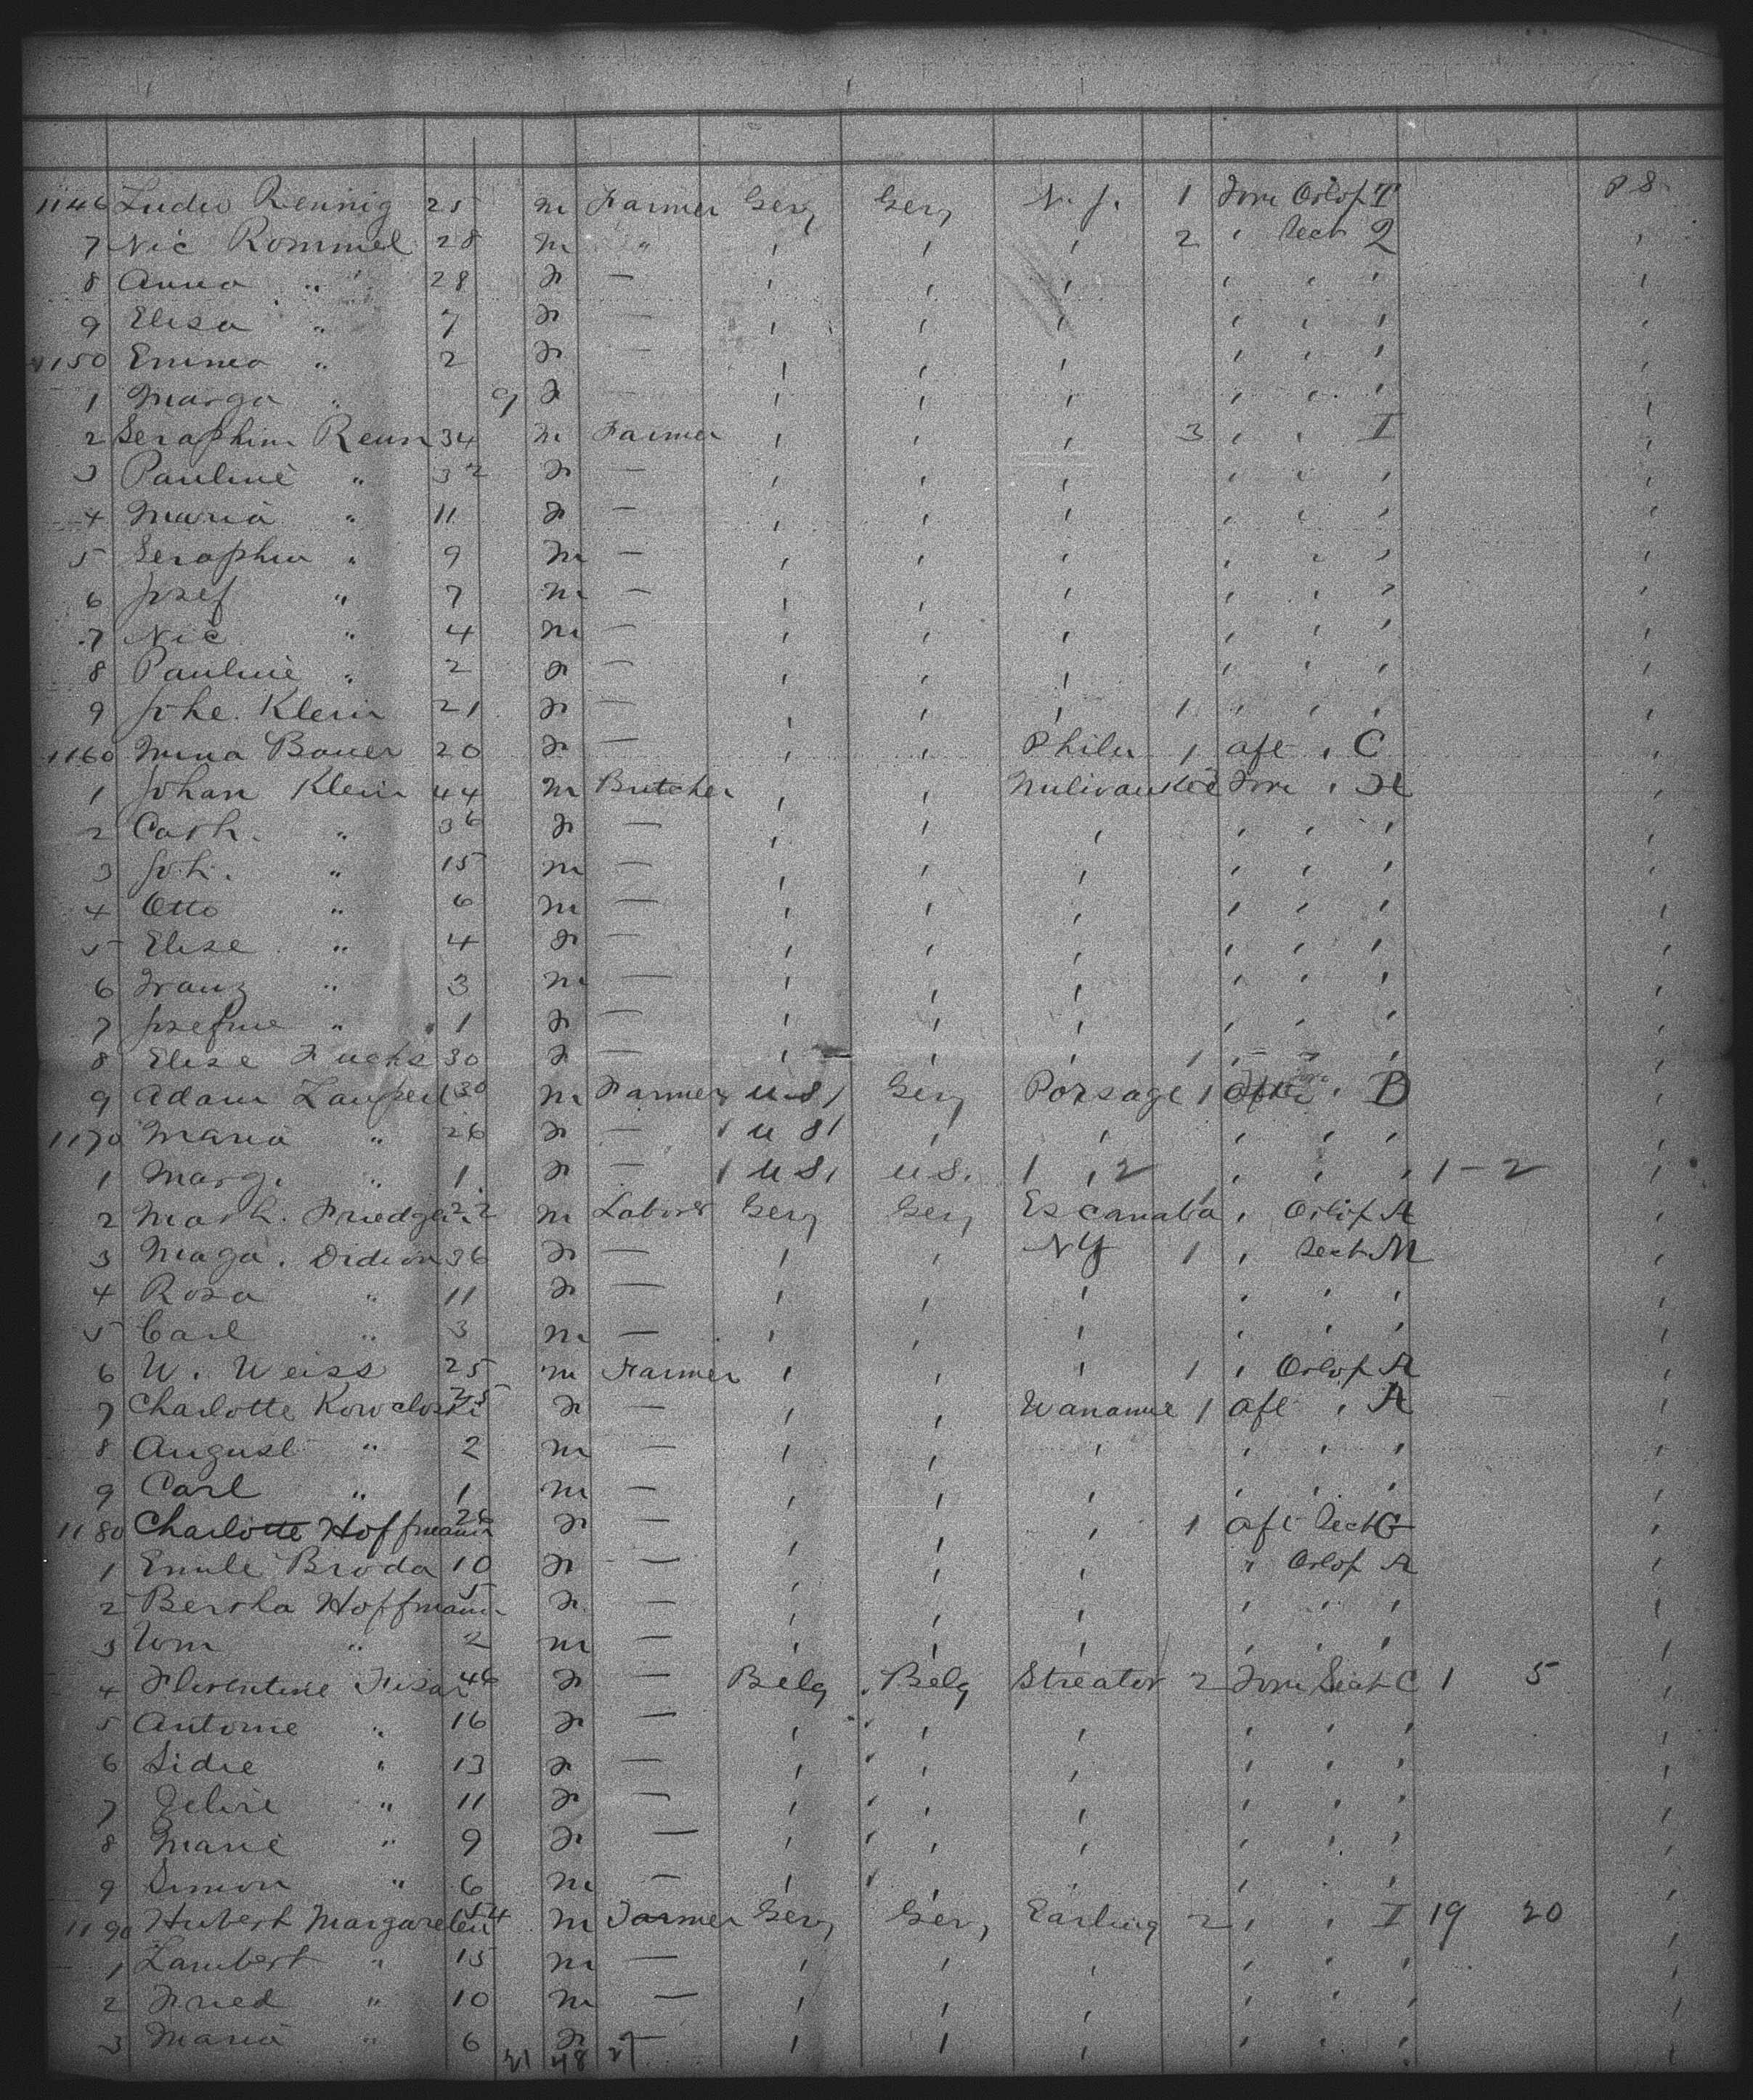 1146 Ludw Rennig 25 m Farmer Gery Gery N. J. 1 Forw Orlop P 8
7 Nic Rommel 28 m " , , , 2 , Deck 2 ,
8 Anna " 28 f — , , , , , , ,
9 Elisa " 7 f — , , , , , , ,
1150 Emma " 2 f — , , , , , , ,
1 Marga " 9 f — , , , , , , ,
2 Seraphin Reun 34 m Farmer , , , 3 , , I ,
3 Pauline " 32 f — , , , , , , ,
4 Maria " 11 f — , , , , , , ,
5 Seraphin " 9 m — , , , , , , ,
6 Josef " 7 m — , , , , , , ,
7 Nic " 4 m — , , , , , , ,
8 Pauline " 2 f — , , , , , , ,
9 Johe. Klein 21 f — , , , 1 , , , ,
1160 Mina Bauer 20 f — , , Phila 1 aft , C ,
1 Johan Klein 44 m Butcher , , Milwaukee Forw , H ,
2 Cath. " 36 f — , , , , , , ,
3 Joh. " 15 m — , , , , , , ,
4 Otto " 6 m — , , , , , , ,
5 Elise " 4 f — , , , , , , ,
6 Franz " 3 m — , , , , , , ,
7 Josefine " 1 f — , , , , , , ,
8 Elise Fuchs 30 f — , , , 1 , , , ,
9 Adam 30 m Farmer U.S. Gery Portage 1 , D ,
1170 Maria " 26 f — U S , , , , , ,
1 Marg. " 1 f — U S, U S. 1 , 2 , , , 1 - 2 ,
2 Math. 22 m Labore Gery Gery Escanaba , Orlop A ,
3 Maga. Didion 36 f — , , NY 1 , Deck M ,
4 Rosa " 11 f — , , , , , , ,
5 Carl " 3 m — , , , , , , ,
6 W. Weiss 25 m Farmer , , , 1 , Orlop A ,
7 Charlotte Kowaloski 25 f — , , Wanamie 1 aft , A ,
8 August " 2 m — , , , , , , ,
9 Carl " 1 m — , , , , , , ,
1180 Charlotte Hoffmann 26 f — , , , 1 aft Deck G ,
1 Emile Broda 10 f — , , , " Orlop A ,
2 Bertha Hoffmann 5 f — , , , , , , ,
3 Wm " 2 m — , , , , , , ,
4 Florentine 46 f — Belg Belg Streator 2 Forw Deck C 1 5 ,
5 Antoine " 16 f — , , , , , , ,
6 Sidie " 13 f — , , , , , , ,
7 Zelire " 11 f — , , , , , , ,
8 Marie " 9 f — , , , , , , ,
9 Simon " 6 m — , , , , , , ,
1190 Hubert Margareten 54 m Farmer Gery Gery Earling 2 , , I 19 20 ,
1 Lambert " 15 m — , , , , , , ,
2 Fried " 10 m — , , , , , , ,
3 Maria " 6 f — , , , , , , ,
21 48 27